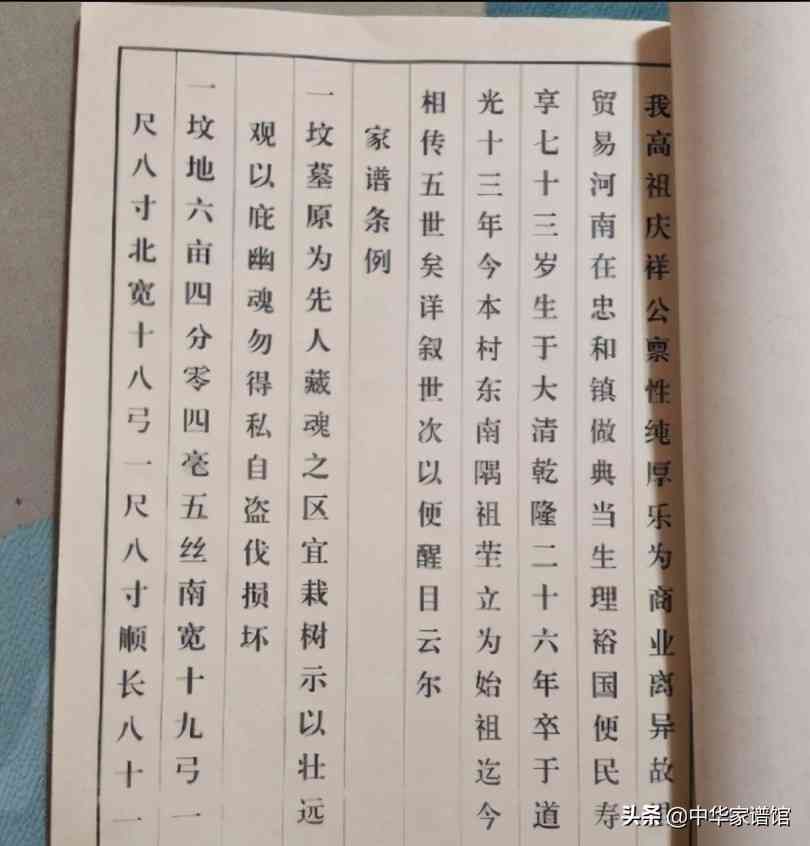 我高祖庆祥公禀性纯厚乐为商业离异故
贸易河南在忠和镇做典当生理裕国便民寿
享七十三岁生于大清乾隆二十六年卒于道
光十三年今本村东南隅祖茔立为始祖迄今
相传五世矣详叙世次以便醒目云尔
家谱条例
一坟墓原为先人藏魂之区宜栽树示以壮远
观以庇幽魂勿得私自盗伐损坏
一坟地六亩四分零四毫五丝南宽十九弓一
尺八寸北宽十八弓一尺八寸顺长八十一
头条 @中华家谱馆